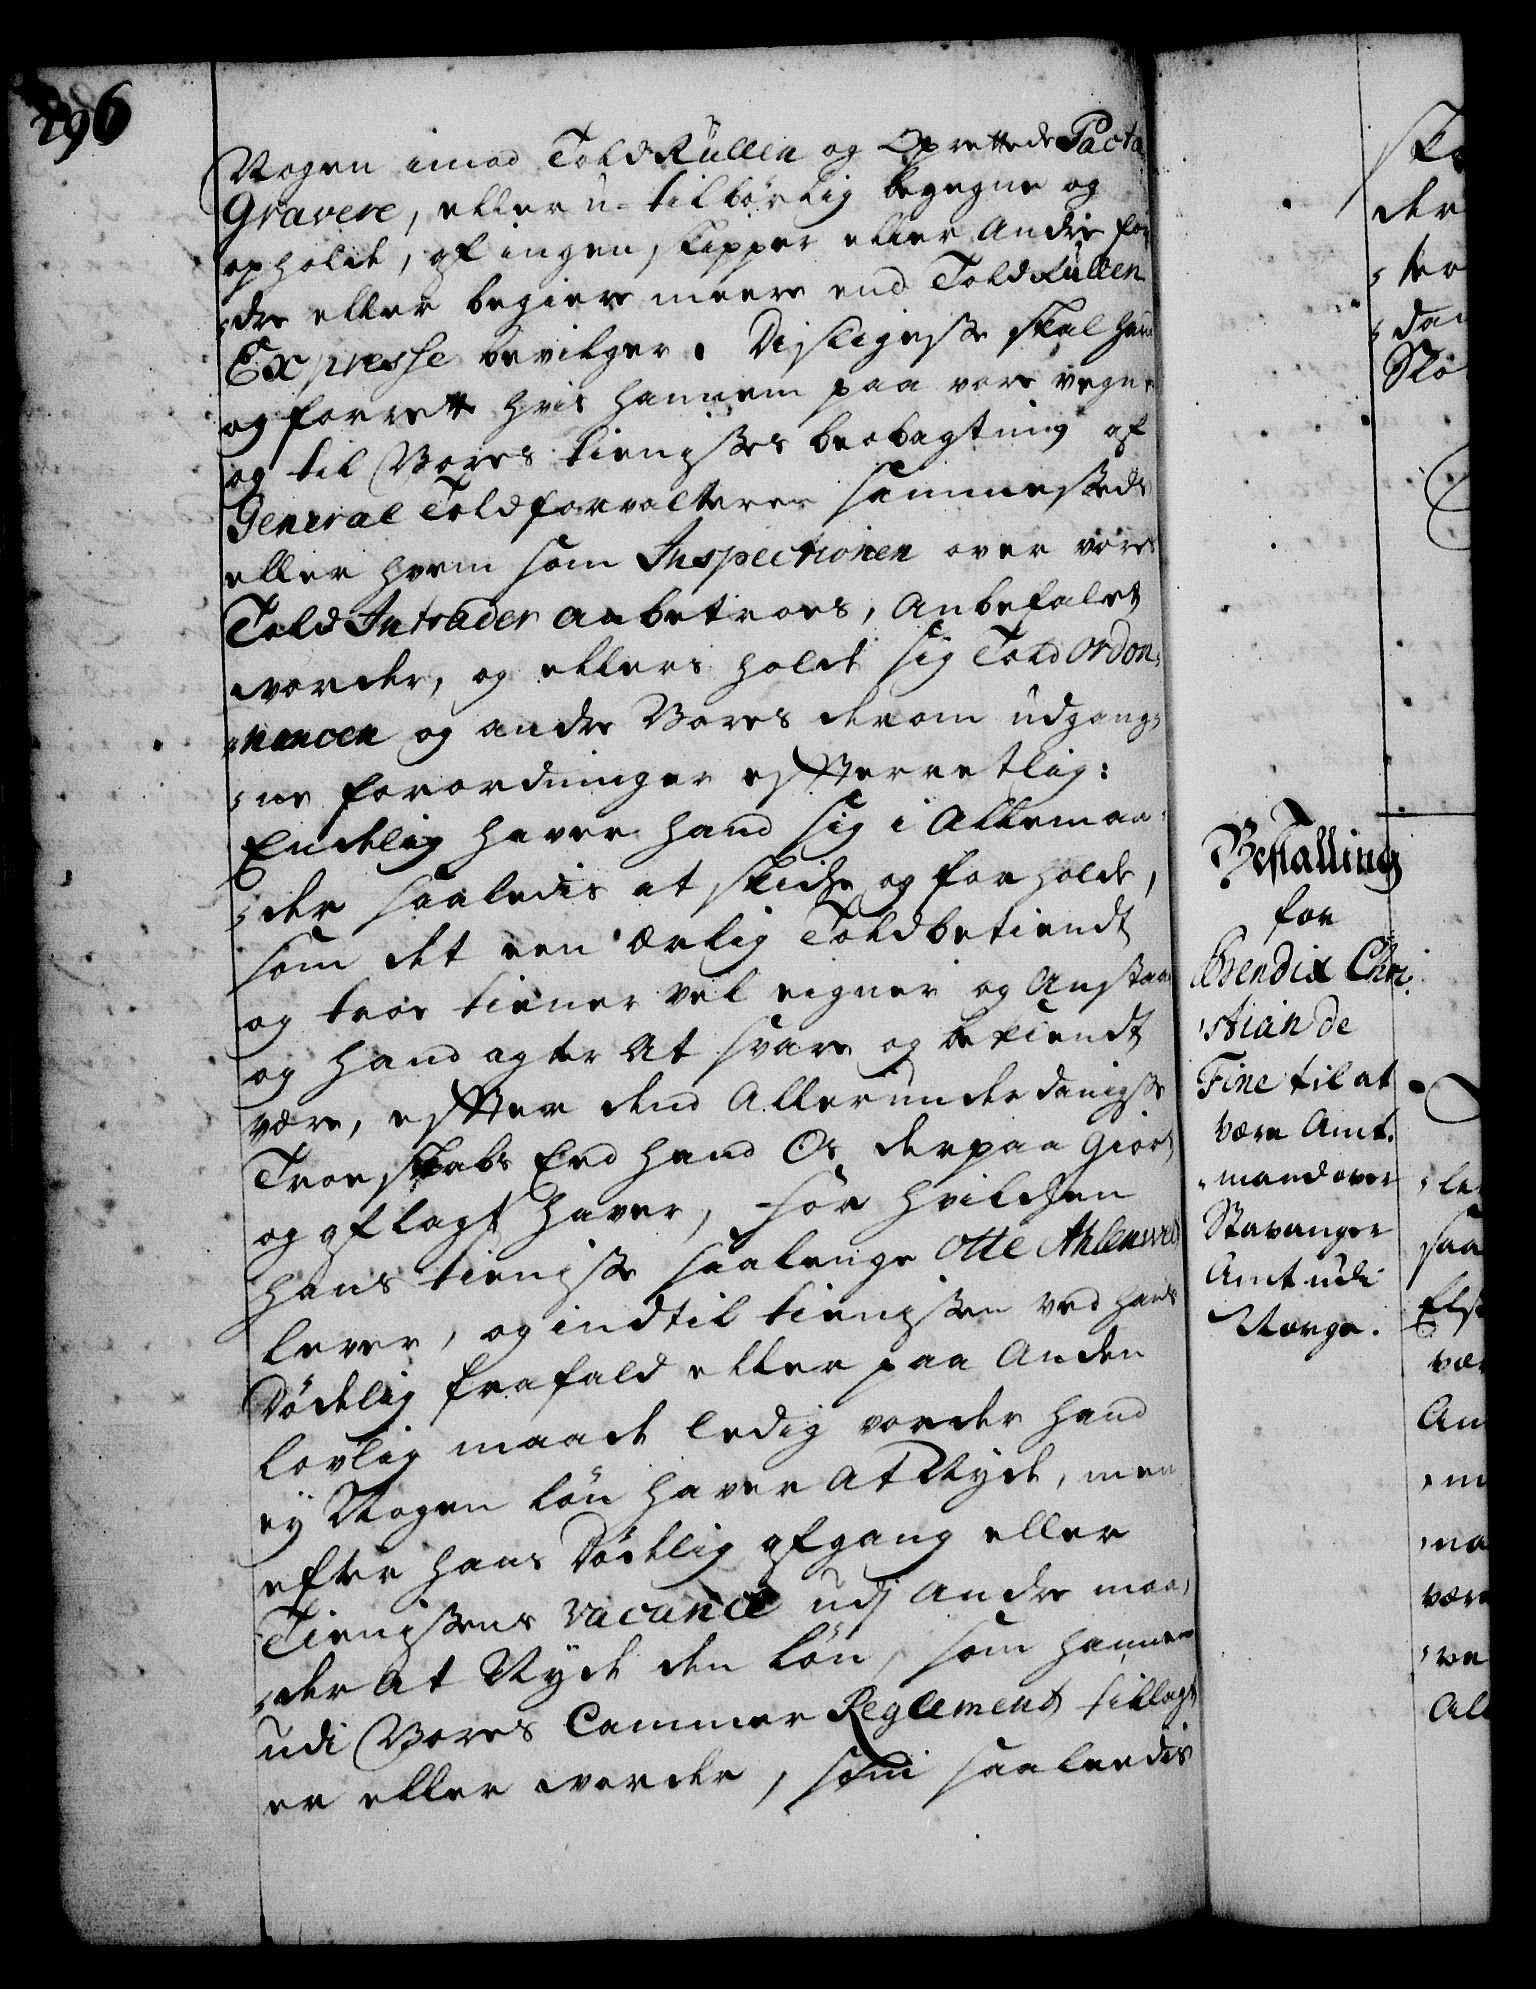 296
Nogen imod ToldRullen og Oprettede Pacta
Gravere, eller u-tilbørlig begegne og
opholde, af ingen skipper eller Andre for¬
dre eller begiere meere end ToldRullen
Expresse bevilger. Disligeste skal hand
og forrette hvis hannem paa vore vegne
og til Vores tienistes beobagtning af
General Toldforvalteren sammesteds
eller hvem som Inspectionen over vores
Told Intrader anbetroes, Anbefalet
vorder, og ellers holde sig Told Ordon¬
nancen og andre Vores derom udgang¬
ne forordninger efterretlig:
Endelig haver hand sig i Allemaa¬
der saaledis at skicke og forholde,
som det een ærlig Toldbetiendt
og troe tiener vel eigner og Anstaar
og hand agter At svare og bekiendt
være, efter dend Allerunderdanigste
Troeskabs Eed hand Os derpaa Giort
og aflagt haver, for hvilcken
hans tieniste saalenge Otte Ahlenveld
lever, og indtil tienisten ved hands
Dødelig frafald eller paa Anden
lovlig maade ledig vorder hand
ej Nogen løn haver At Nyde, men
efter hans Dødelig afgang eller
Tienistens vacance udj Andre maa¬
der At Nyde den løn, som hannem
udi Vores Cammer Reglement tillagt
er eller vorder, som saaleedis
Bestalling
for
Bendix Chri¬
stian de
Fine til at
være Amt¬
mand over
Stavanger
Amt udi
Norge.